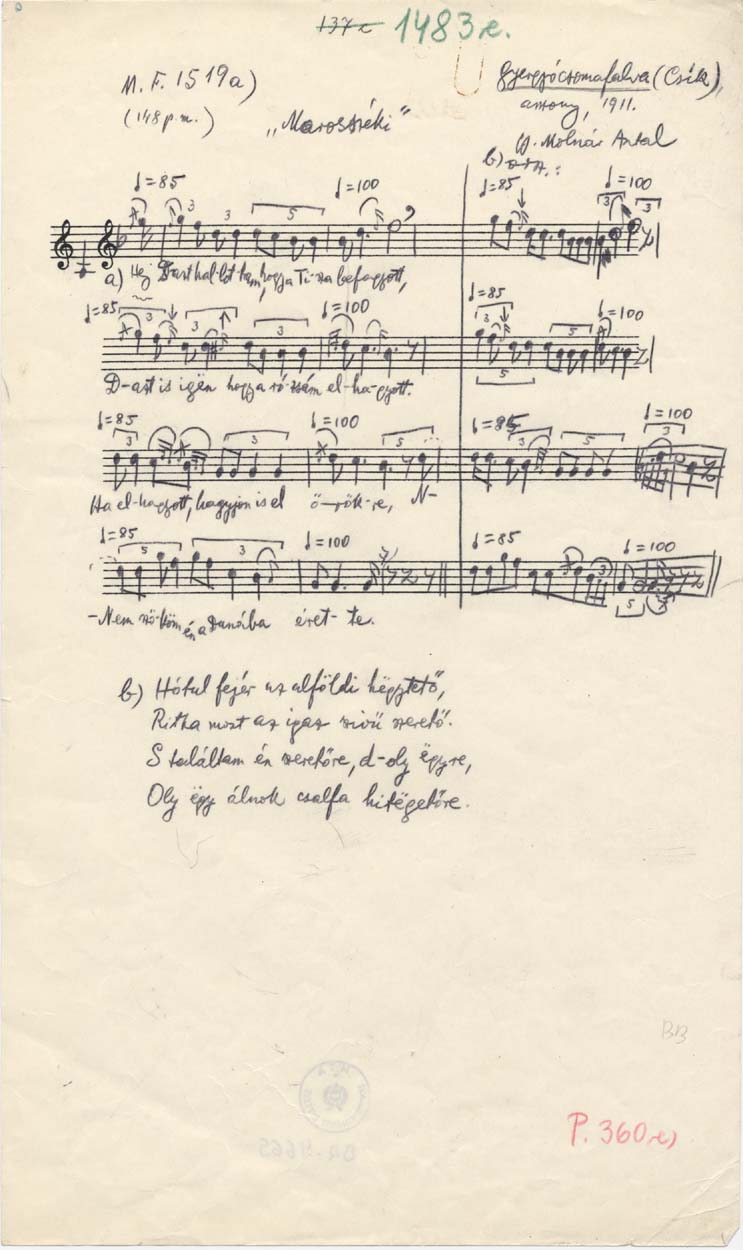 137e 1483e.
M. F. 1519a)
Gyergyócsomafalva (Csík),
(148 p.m.)
asszony, 1911.
"Marosszéki"
Gy. Molnár Antal
b)
♩=85 ♩=100 ♩=85 ♩=100
a) Hej Dazt hal-lot-tam, hogya Ti-sza befagyott,
♩=85 ♩=100 ♩=85 ♩=100
D-azt is igën hogya ró-zsám el-ha-gyott.
♩=85 ♩=100 ♩=85 ♩=100
Ha el-hagyott, hagyjon is el ö-rök-re, N-
♩=85 ♩=100 ♩=85 ♩=100
-Nem szö-köm én a Dunába éret-te.
b) Hótul fejér az alföldi hëgytető,
Ritka most az igaz szivű szerető.
S találtam én szeretőre, d-oly ëgyre,
Oly ëgy álnok csalfa hitëgetőre.
BB
P. 360e)